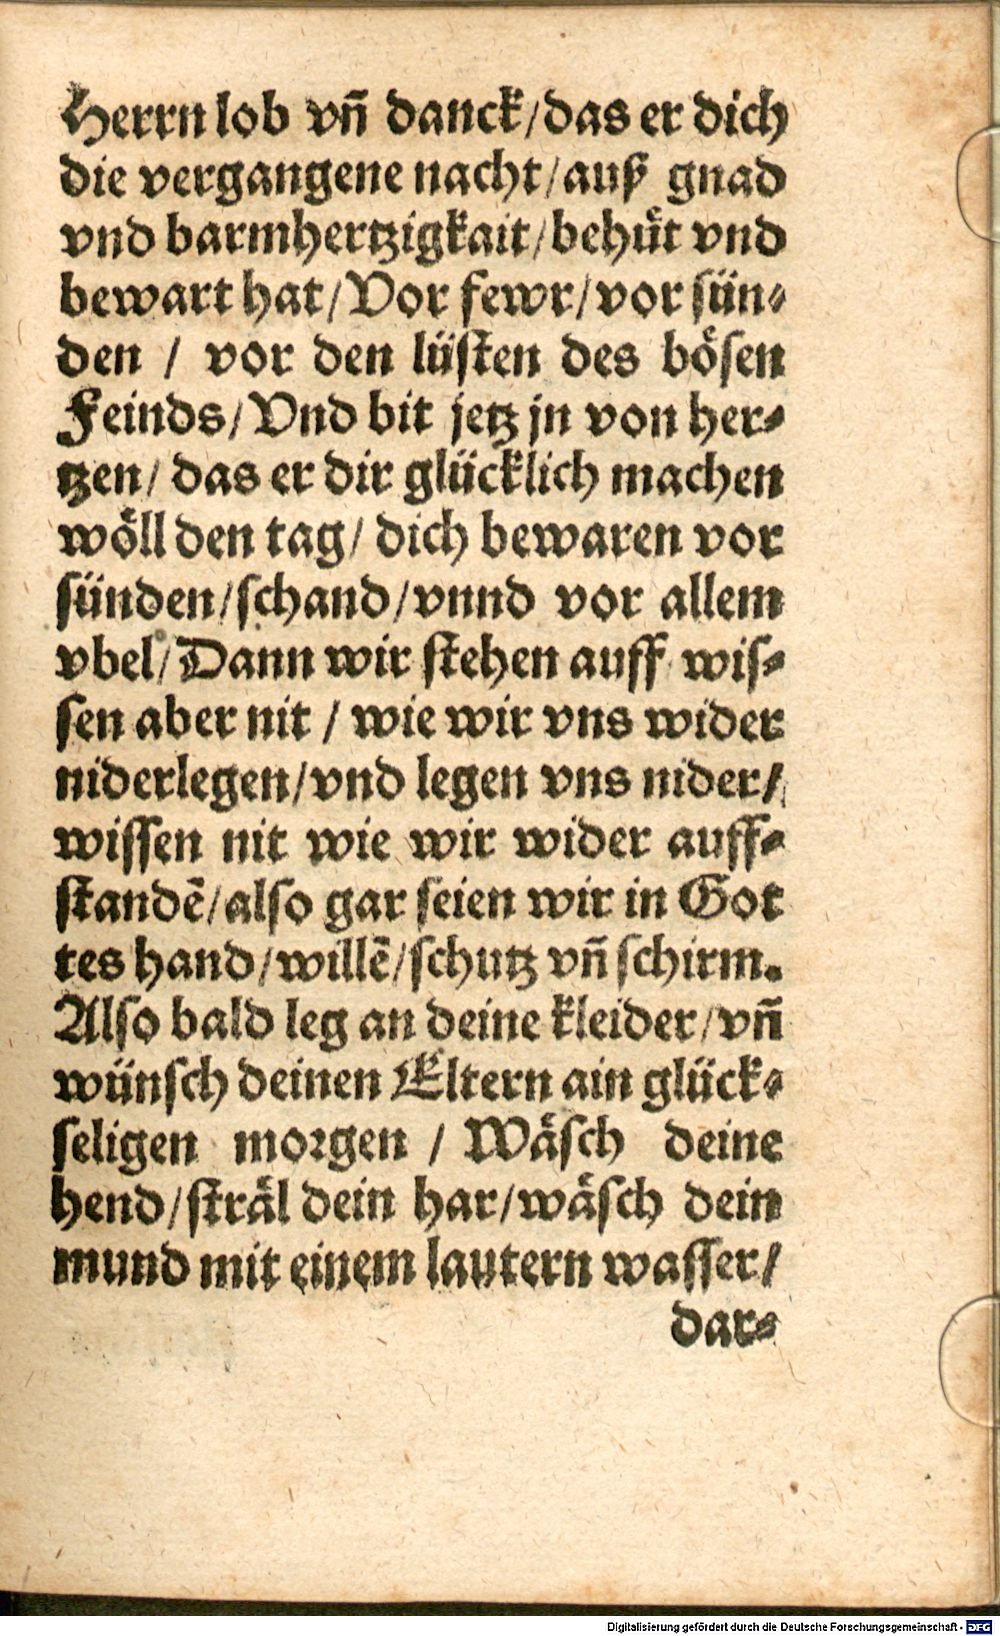 Herrn lob vn̄ danck/das er dich
die vergangene nacht/auß gnad
vnd barmhertzigkait/behuͤt vnd
bewart hat/Vor fewr/vor sün-
den / vor den lüsten des boͤsen
Feinds/Vnd bit jetz jn von her-
tzen/ das er dir glücklich machen
woͤll den tag/ dich bewaren vor
sünden/schand/vnnd vor allem
vbel/Dann wir stehen auff wis-
sen aber nit / wie wir vns wider
niderlegen/vnd legen vns nider/
wissen nit wie wir wider auff-
standē/also gar seien wir in Got
tes hand/willē/schutz vn̄ schirm.
Also bald leg an deine kleider/vn̄
wünsch deinen Eltern ain glück-
seligen morgen / Waͤsch deine
hend/straͤl dein har/waͤsch dein
mund mit einem lautern wasser/
dar-
Digitalisierung gefördert durch die Deutsche Forschungsgemeinschaft - DFG